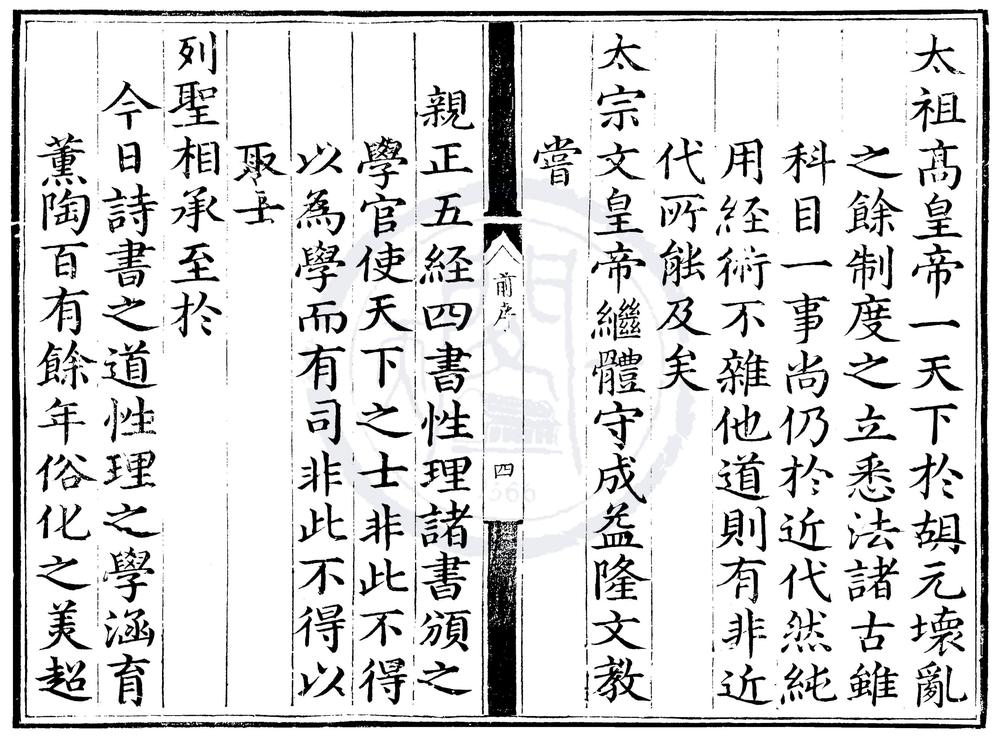 太祖髙皇帝一天下於胡元壞亂
之餘制度之立悉法諸古雖
科目一事尚仍於近代然純
用経術不雜他道則有非近
代所能及矣
太宗文皇帝繼體守成益隆文教
嘗
前序
四
親正五経四書性理諸書頒之
學官使天下之士非此不得
以為學而有司非此不得以
取士
列聖相承至於
今日詩書之道性理之學涵育
薫陶百有餘年俗化之美超